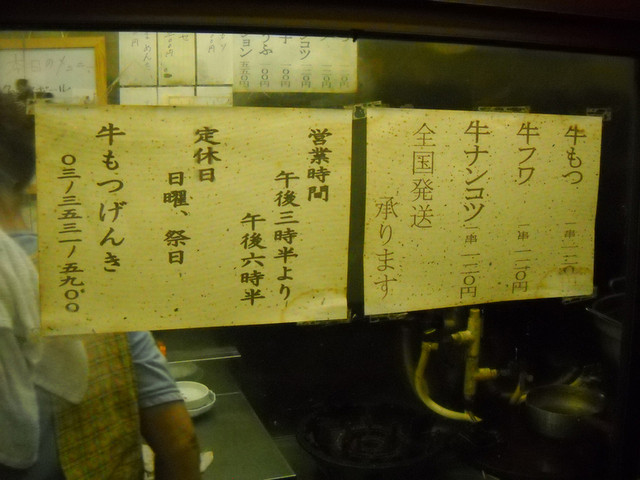 牛もつ 一串 一二〇円
牛フワ 一串 一二〇円
牛ナンコツ 一串 一二〇円
全国発送
承ります
営業時間
午後三時半より
午後六時半
定休日
日曜、祭日
牛もつげんき
〇三/三五三一/五九〇〇